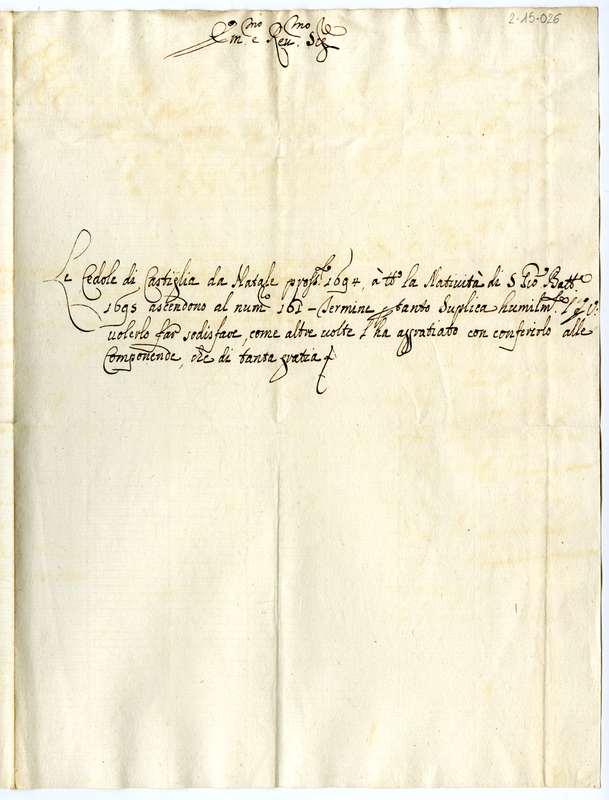 2-15-026
Em.mo e Reu.mo Sig.re
Le Cedole di Castiglia da Natale pross.o 1694. à tt.o la Natività di S Gio Batt.a
1695 ascendono al num.o 161 - tanto Suplica humilm.te
uolerlo far sodisfare, come altre uolte l'ha aggratiato con conferirlo alle
Componende, che di tanta gratia